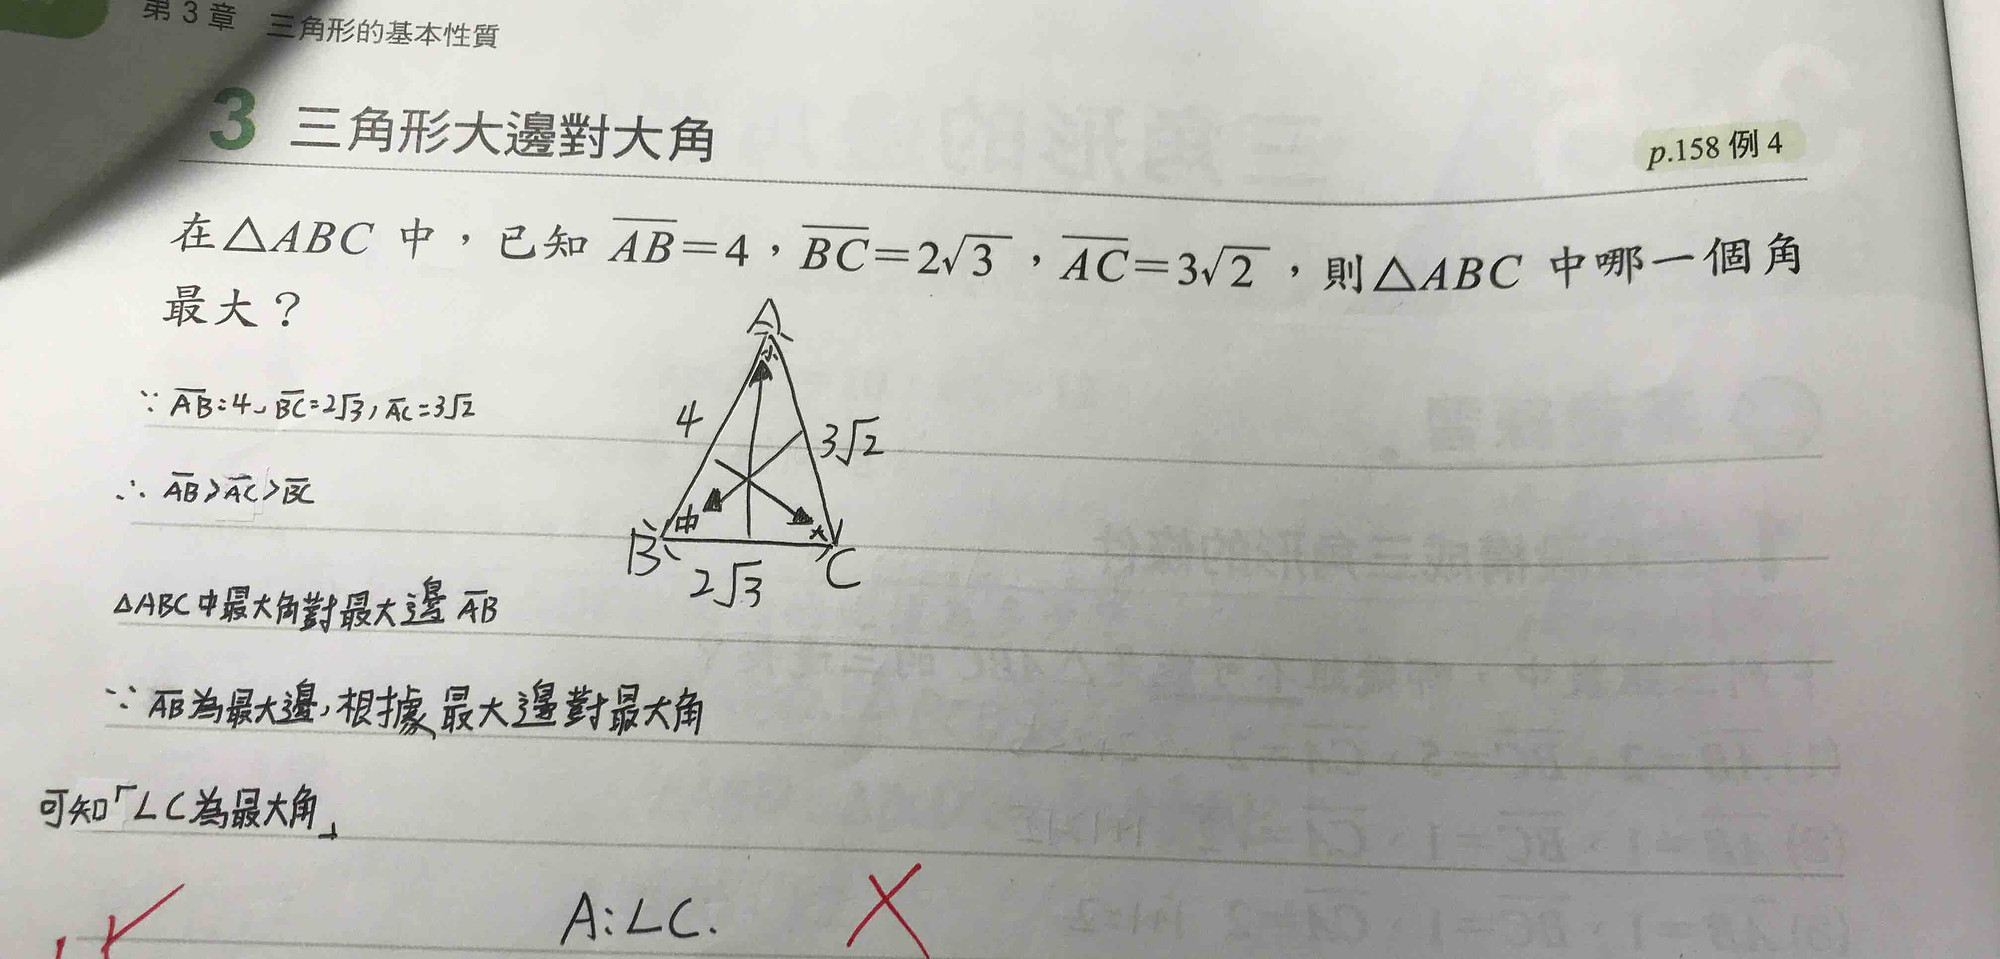 第3章 三角形的基本性質
3 三角形大邊對大角
p.158 例 4
在△ABC 中，已知 AB=4，BC=2√3，AC=3√2，則△ABC 中哪一個角
最大？
A
小
∵ AB=4、BC=2√3，AC=3√2
4
3√2
∴ AB>AC>BC
中
大
B
C
2√3
△ABC中最大角對最大邊 AB
∵ AB為最大邊，根據最大邊對最大角
可知「∠C為最大角」
A:∠C.